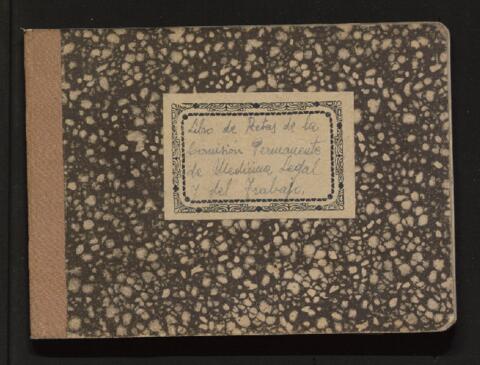 Libro de Actas de la
Comisión Permanente
de Medicina Legal
y del Trabajo.